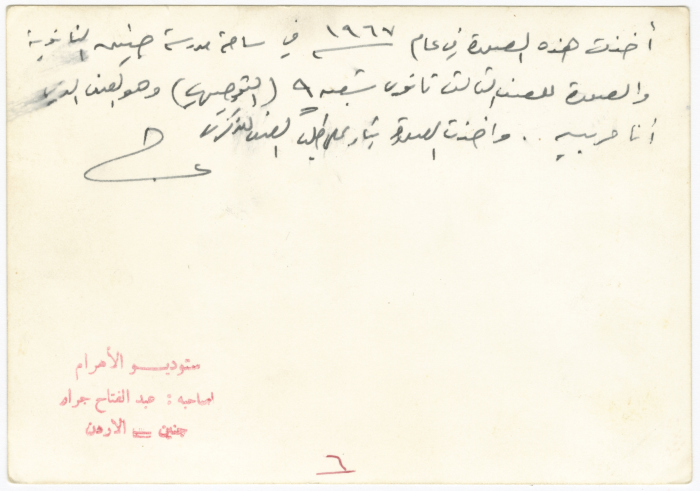 أخذت هذه الصورة في عام ١٩٦٧ في ساحة مدرسة جنين الثانوية
والصورة للصف الثالث ثانوي شعبة ٩ (التوجيهي) وهو الصف الذي
أنا مربيه .. واخذت الصورة بناء على طلب الصف للذكرى
ستوديو الأهرام
لصاحبه : عبد الفتاح جرار
جنين ــ الاردن
٦